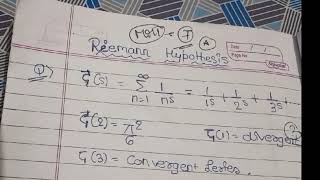 Riemann Hypothesis
Date
Page No.
Q) ζ(s) = ∑_{n=1}^{∞} 1/n^s = 1/1^s + 1/2^s + 1/3^s +
ζ(2) = π²/6 ζ(1) = divergent
ζ(3) = Convergent Series.